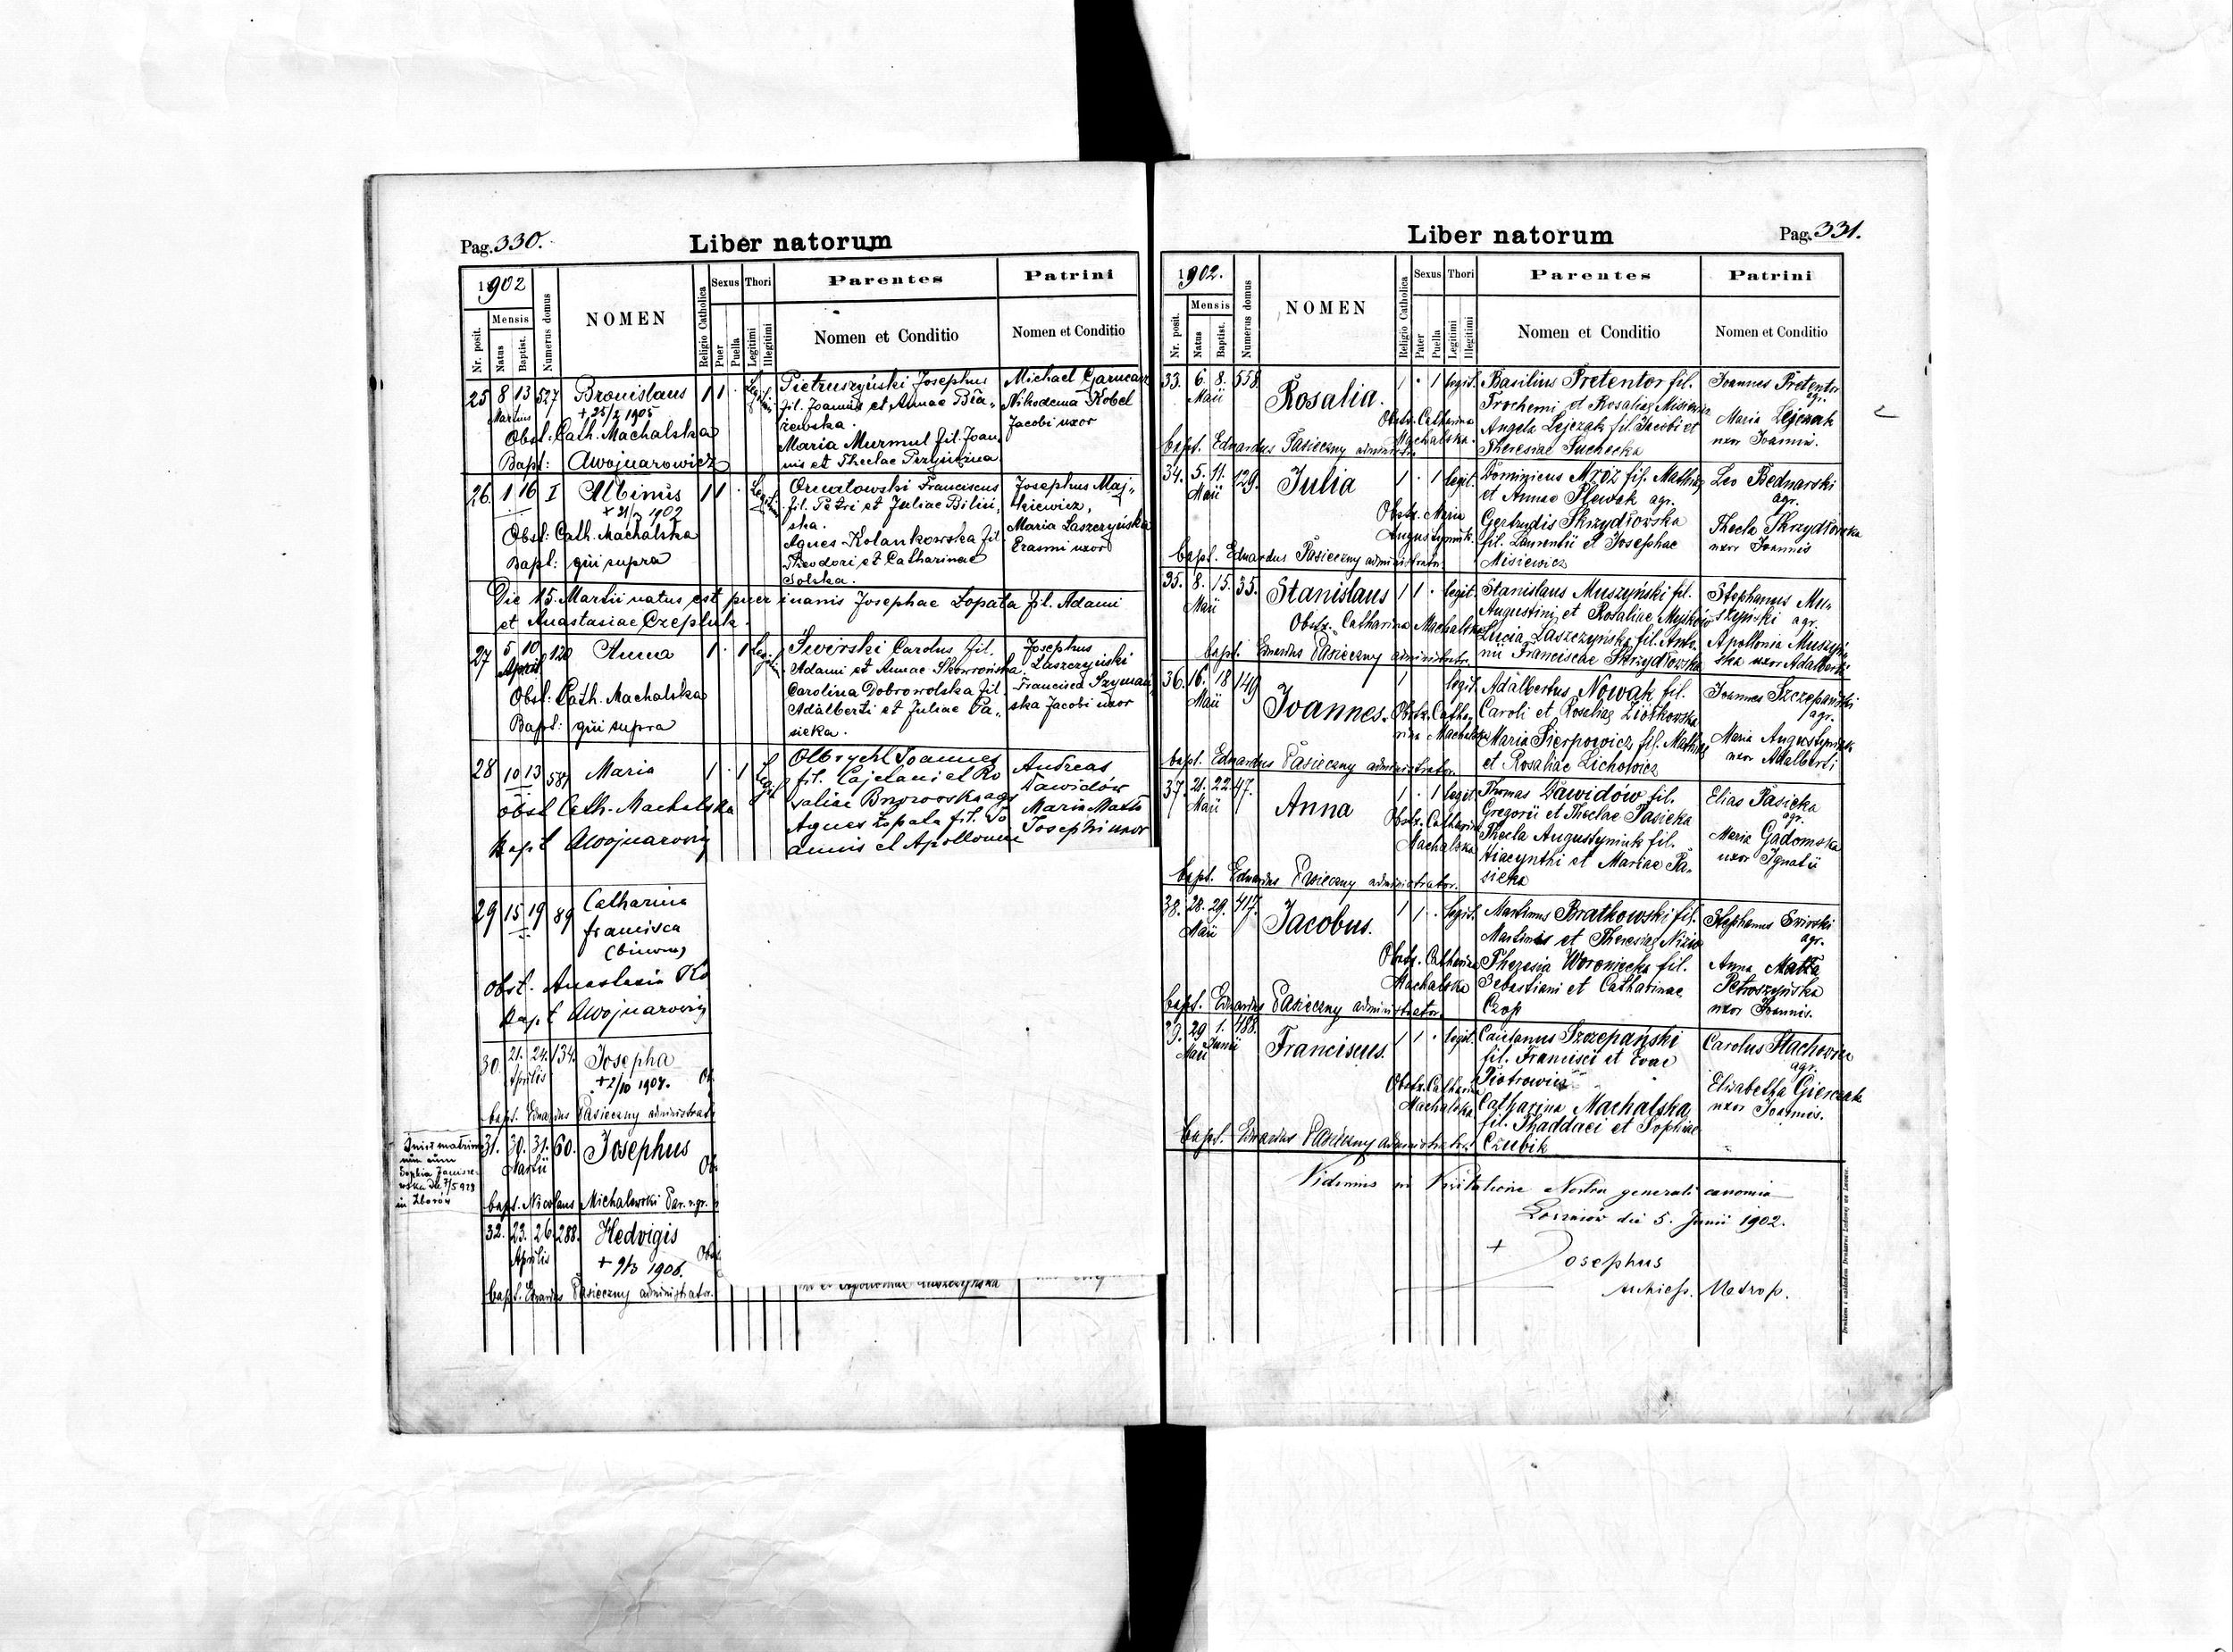 Pag. 330.
Liber natorum
1902
Nr. posit.
Mensis
Natus
Baptist.
Numerus domus
NOMEN
Religio Catholica
Sexus
Puer
Puella
Thori
Legitimi
Illegitimi
Parentes
Nomen et Conditio
Patrini
Nomen et Conditio
25 8 13 527 Bronislaus 1 1 .
Martius
Obst: Cath. Machalska
Bapt:
Pietruszyński Josephus
fil. Joannis et Annae Bia„
żewska.
Maria Murmul fil. Joan„
nis et Theclae
Michael Garncarz
Nikodema Kobel
Jacobi uxor
26. 1 16 I Albinus 1 1 .
Obst: Cath. Machalska
Bapt: qui supra
Franciscus
fil. Petri et Juliae Biliń„
ska.
Agnes Kolankowska fil.
Theodori et Catharinae
Solska.
Josephus Maj„
kiewicz,
Maria Łaszczyńska
Erasmi uxor
Die 15. Martii natus est puer inanis Josephae Łopata fil. Adami
et Anastasiae Czepluk.
27 5 10 120 Anna 1 . 1
April
Obst: Cath. Machalska
Bapt: qui supra
Świrski Carolus fil.
Adami et Annae Skowrońska.
Carolina Dobrowolska fil.
Adalberti et Juliae Pa„
sieka.
Josephus
Łaszczyński
Francisca Szymań„
ska Jacobi uxor
28 10 13 587 Maria 1 . 1
Obst Cath. Machalska
Bapt
Olbrycht Joannes
fil. Cajetani et Ro
saliae agr
Agnes Łopata fil. Jo
annis et Apolloniae
Andreas
Dawidów
Maria
Josephi uxor
29 15 19 89 Catharina
Francisca
obst. Anastasia Ko
Bapt
30. 21. 24. 134. Josepha
Aprilis
+2/10 1907.
bapt. Eduardus Pasieczny administrator
31. 30. 31. 60. Josephus
Martii
bapt. Nicolaus Michalewski
Sophia
in Zborów
32. 23. 26. 288. Hedvigis
Aprilis
+ 9/3 1906.
bapt. Eduardus Pasieczny administrator.
Pag. 331.
Liber natorum
1902.
Nr. posit.
Mensis
Natus
Baptist.
Numerus domus
NOMEN
Religio Catholica
Sexus
Puer
Puella
Thori
Legitimi
Illegitimi
Parentes
Nomen et Conditio
Patrini
Nomen et Conditio
33. 6. 8. 558. Rosalia. 1 . 1 legit.
Maii
Obstr. Catharina
Machalska.
bapt. Eduardus Pasieczny administr.
Basilius Pretentor fil.
Trochemi et Rosaliae Misiewicz
Angela Lejczak fil. Jacobi et
Theresiae Suchecka
Joannes Pretentor
agr.
Maria Lejczak
uxor Joannis.
34. 5. 11. 129. Julia 1 . 1 legit.
Maii
Obstr. Maria
Augustyniuk.
bapt. Eduardus Pasieczny administrator.
Dominicus Mróz fil. Mathiae
et Annae Plewak agr.
Gertrudis Skrzydłowska
fil. Laurentii et Josephae
Misiewicz
Leo Bednarski
agr.
Thecla Skrzydłowska
uxor Joannis
35. 8. 15. 35. Stanislaus 1 1 . legit.
Maii
Obstr. Catharina Machalska
bapt. Eduardus Pasieczny administrator.
Stanislaus Muszyński fil.
Augustini et Rosaliae Myśków
Lucia Łaszczyńska fil. Anto„
nii Franciscae Skrzydłowska
Stephanus Mu„
szyński agr.
Apollonia Muszyń„
ska uxor Adalberti
36. 16. 18 149 Joannes. 1 legit.
Maii
Obstr. Catha„
rina Machalska
bapt. Eduardus Pasieczny administrator.
Adalbertus Nowak fil.
Caroli et Rosaliae Ziółkowska
Maria Sierpowicz fil. Mathiae
et Rosaliae Lichowicz
Joannes Szczepański
agr.
Maria Augustyniuk
uxor Adalberti
37. 21. 22. 47. Anna 1 . 1 legit.
Maii
Obstr. Catharina
Machalska
bapt. Eduardus Pasieczny administrator.
Thomas Dawidów fil.
Gregorii et Theclae Pasieka
Thecla Augustyniuk fil.
Hiacynthi et Mariae Pa„
sieka
Elias Pasieka
agr.
Maria Gadomska
uxor Ignatii
38. 28. 29. 417. Jacobus. 1 1 . legit.
Maii
Obstr. Catharina
Machalska
bapt. Eduardus Pasieczny administrator.
Martinus Bratkowski fil.
Martini et Theresiae
Theresia Woroniecka fil.
Sebastiani et Catharinae
Czop
Stephanus Świrski
agr.
Anna Matla
Petroszyńska
uxor Joannis.
39. 29 1. 188. Franciscus. 1 1 . legit.
Maii Junii
Obstr. Catharina
Machalska
bapt. Eduardus Pasieczny administrator.
Caietanus Szczepański
fil. Francisci et Evae
Piotrowicz
Catharina Machalska
fil. Thaddaei et Sophiae
Czubik
Carolus Stachowicz
agr.
Elisabetha Gierczak
uxor Joannis.
Vidimus in Visitatione Nostra generali canonica
die 5. Junii 1902.
+ Josephus
Archiep. Metrop.